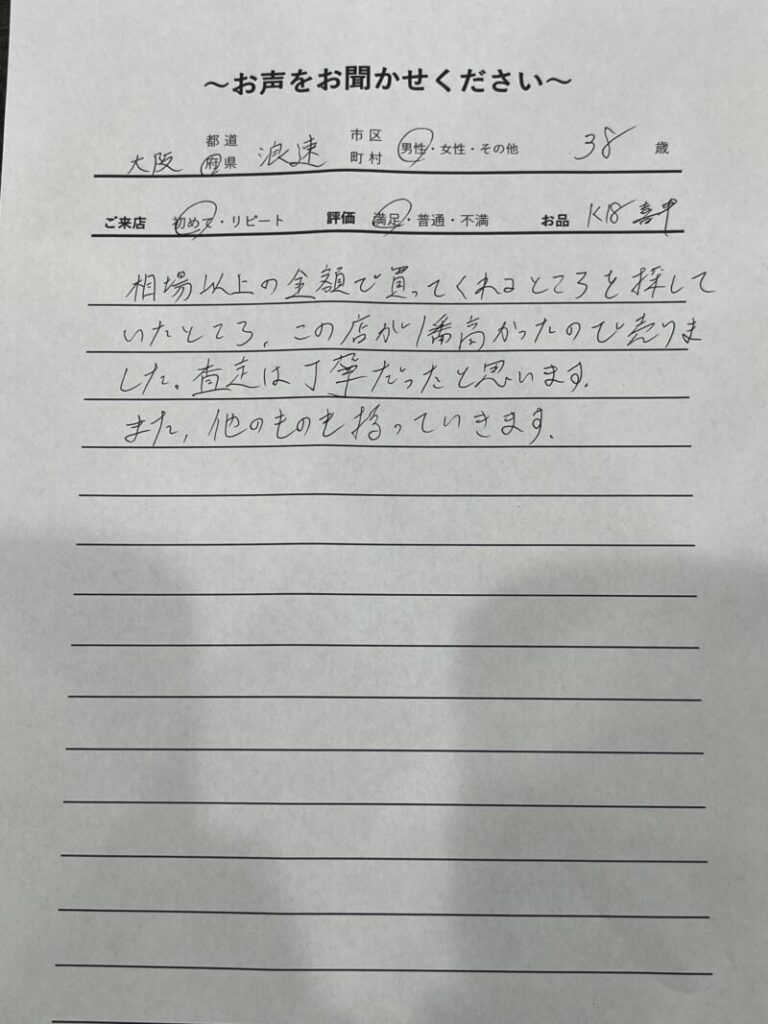 ～お声をお聞かせください～
大阪 都道府県 浪速 市区町村 男性・女性・その他 38 歳
ご来店 初めて・リピート 評価 満足・普通・不満 お品 K18 喜平
相場以上の金額で買ってくれるところを探して
いたところ、この店が1番高かったので売りま
した。査定は丁寧だったと思います。
また、他のものも持っていきます。